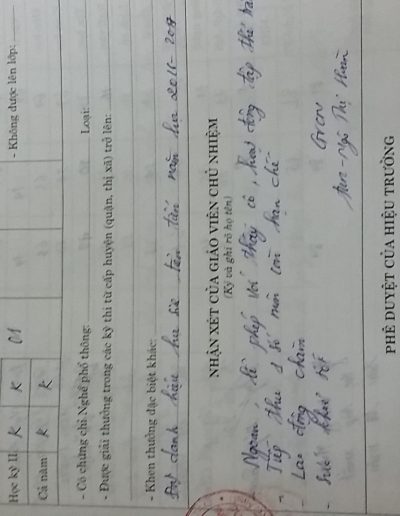 Học kỳ II K K 01 - Không được lên lớp:
Cả năm K K
- Có chứng chỉ Nghề phổ thông: Loại:
- Được giải thưởng trong các kỳ thi từ cấp huyện (quận, thị xã) trở lên:
- Khen thưởng đặc biệt khác:
Đạt danh hiệu học sinh tiên tiến năm học 2016-
NHẬN XÉT CỦA GIÁO VIÊN CHỦ NHIỆM
(Ký và ghi rõ họ tên)
- Ngoan, lễ phép với thầy cô, hoạt động tập thể
- Tiếp thu 1 số môn còn hạn chế
- Lao động chăm
- Sức khoẻ tốt
GVCN
Ngô Thị
PHÊ DUYỆT CỦA HIỆU TRƯỞNG